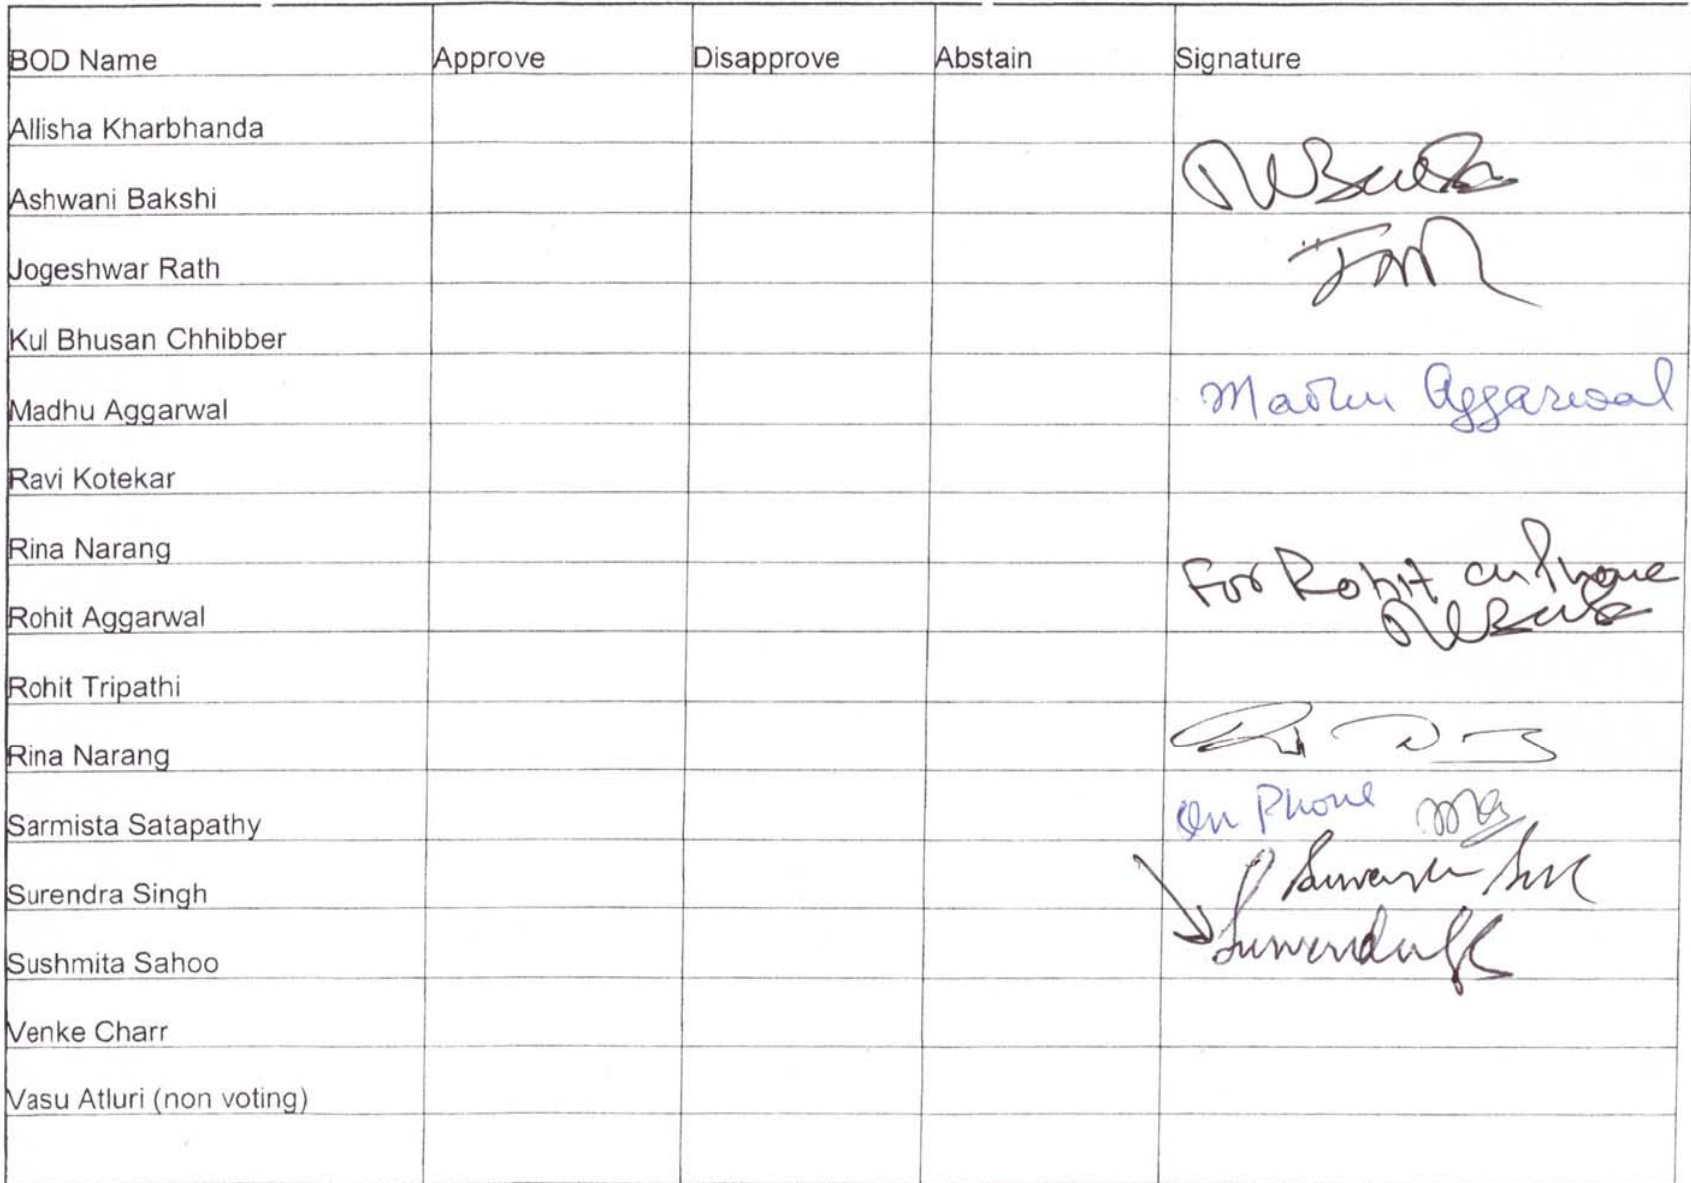 BOD Name Approve Disapprove Abstain Signature
Allisha Kharbhanda
Ashwani Bakshi
Jogeshwar Rath
Kul Bhusan Chhibber
Madhu Aggarwal Madhu Aggarwal
Ravi Kotekar
Rina Narang
For Rohit on Phone
Rohit Aggarwal
Rohit Tripathi
Rina Narang
Sarmista Satapathy On Phone
Surendra Singh
Sushmita Sahoo
Venke Charr
Vasu Atluri (non voting)